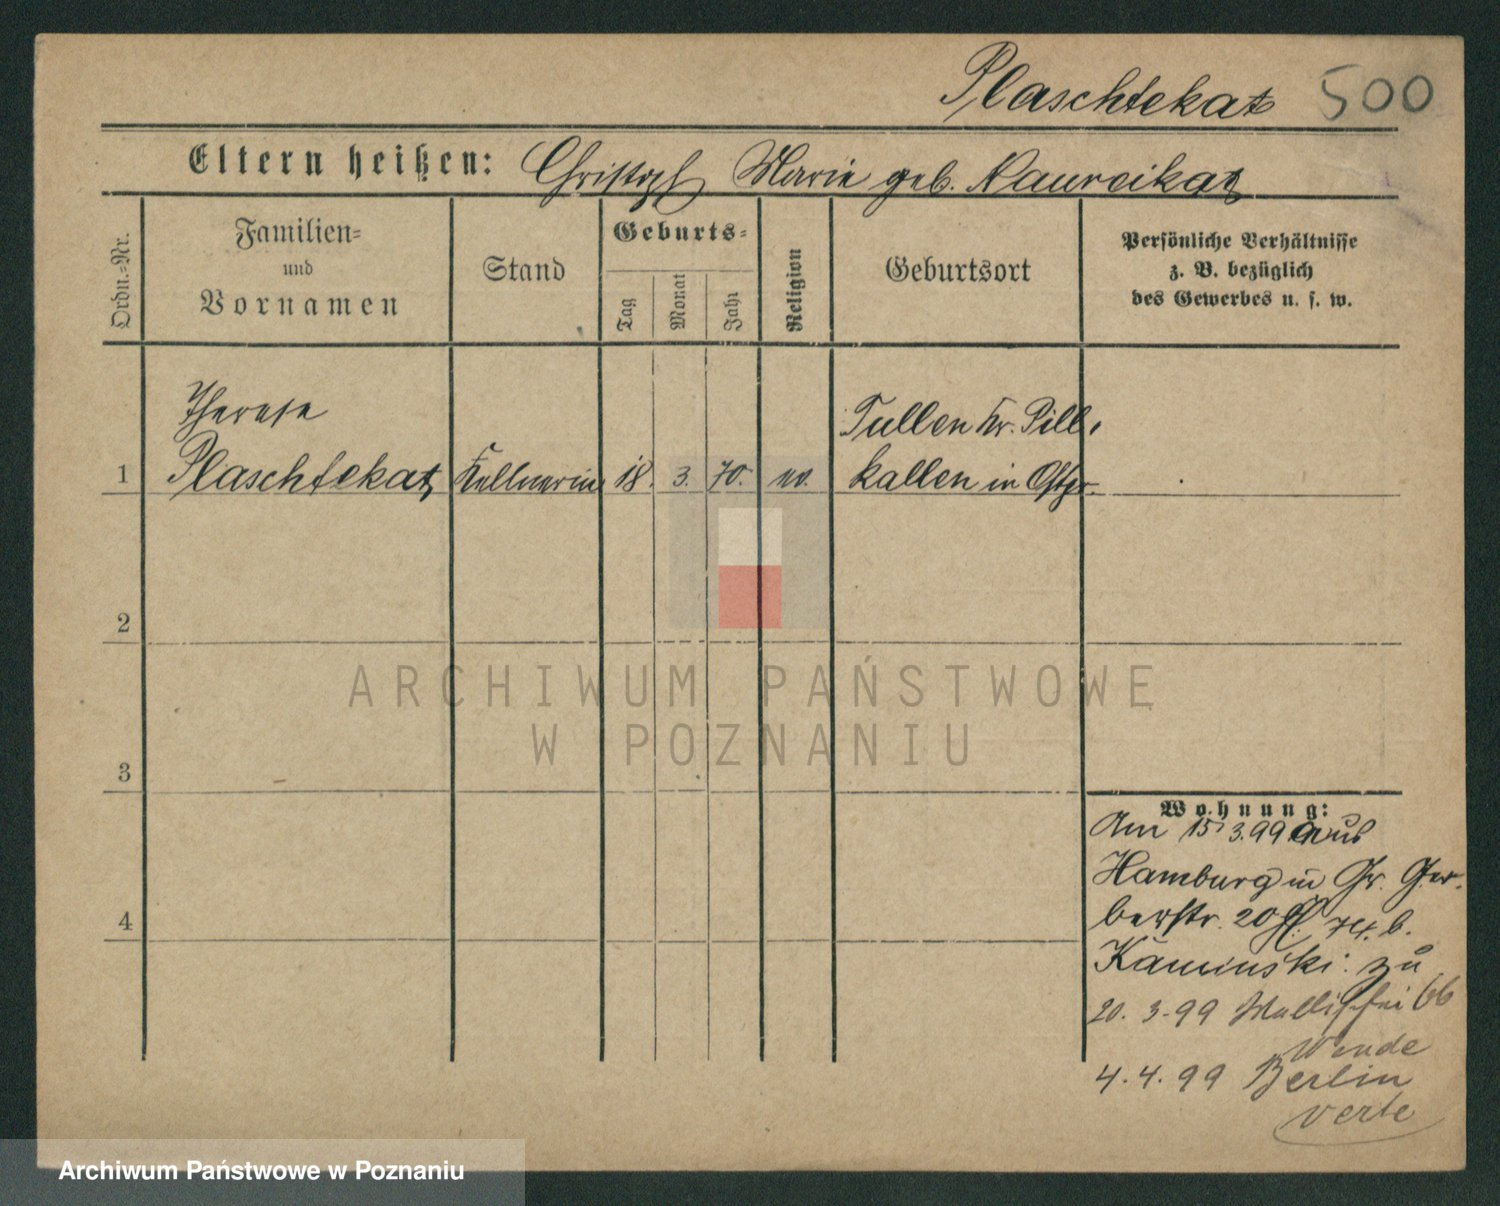 Plaschtekat 500
Eltern heißen: Christoph Marie geb. Naureikat
Ordn.-Nr.
Familien-
und
Vornamen
Stand
Geburts-
Tag
Monat
Jahr
Religion
Geburtsort
Persönliche Verhältnisse
z. B. bezüglich
des Gewerbes u. s. w.
Therese
Tullen Kr. Pill-
1 Plaschtekat Kellnerin 18. 3. 70. ev. kallen in Ostpr.
2
ARCHIWUM PAŃSTWOWE
W POZNANIU
3
Wohnung:
Am 15/3.99 aus
Hamburg in Gr. Ger-
4
berstr. 20 b.
Kaminski zu
20. 3. 99 66
Wende
4. 4. 99 Berlin
verte
Archiwum Państwowe w Poznaniu